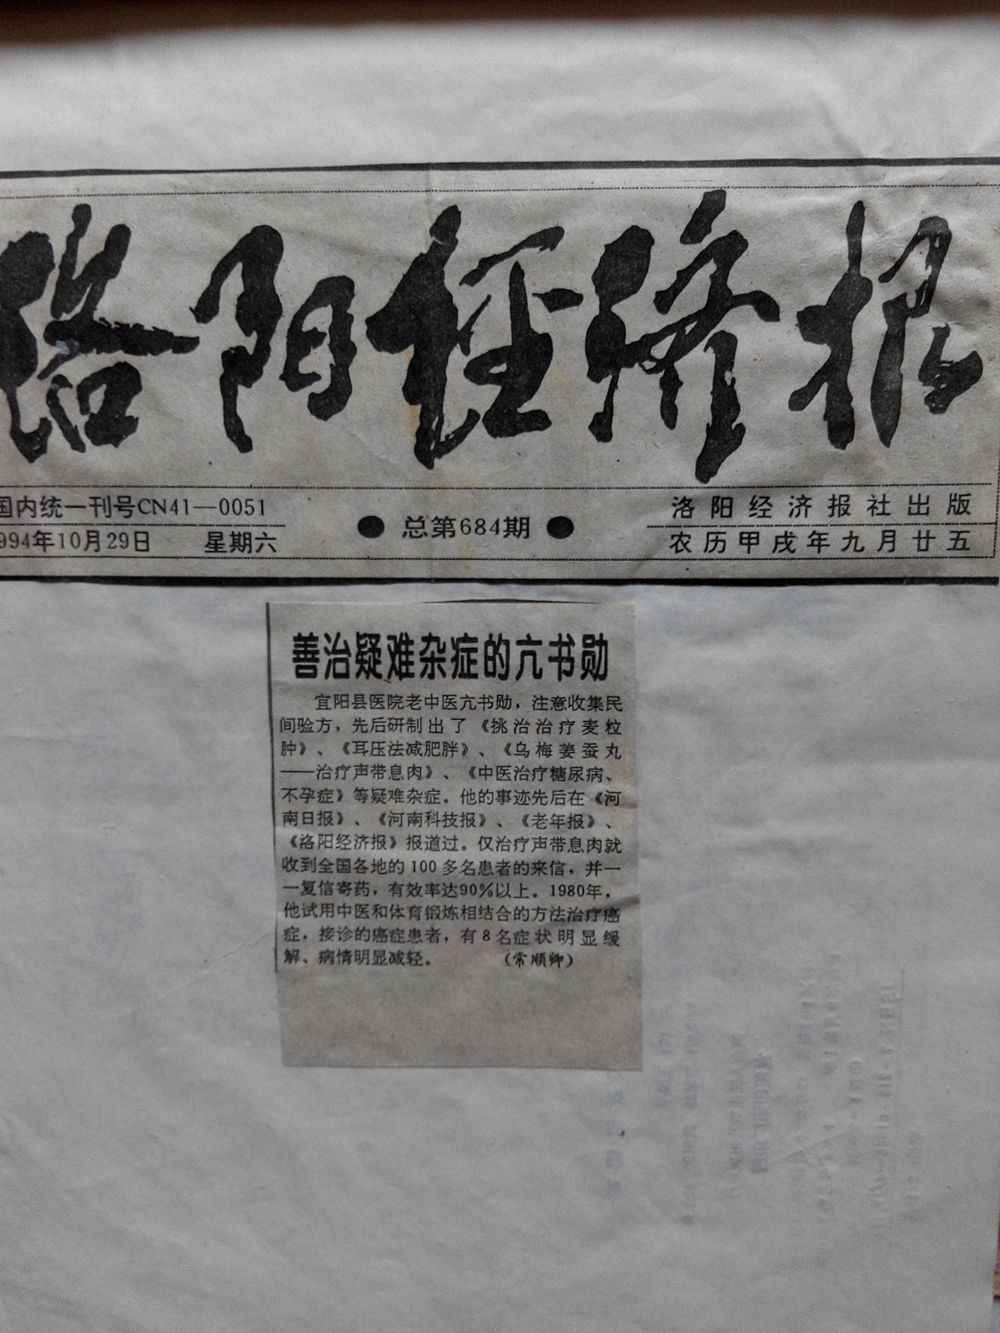 洛阳经济报
国内统一刊号CN41—0051
994年10月29日 星期六
●总第684期●
洛阳经济报社出版
农历甲戌年九月廿五
善治疑难杂症的亢书勋
宜阳县医院老中医亢书勋，注意收集民
间验方，先后研制出了《挑治治疗麦粒
肿》、《耳压法减肥胖》、《乌梅姜蚕丸
——治疗声带息肉》、《中医治疗糖尿病、
不孕症》等疑难杂症。他的事迹先后在《河
南日报》、《河南科技报》、《老年报》、
《洛阳经济报》报道过。仅治疗声带息肉就
收到全国各地的100多名患者的来信，并一
一复信寄药，有效率达90%以上。1980年，
他试用中医和体育锻炼相结合的方法治疗癌
症，接诊的癌症患者，有8名症状明显缓
解、病情明显减轻。 （常顺卿）